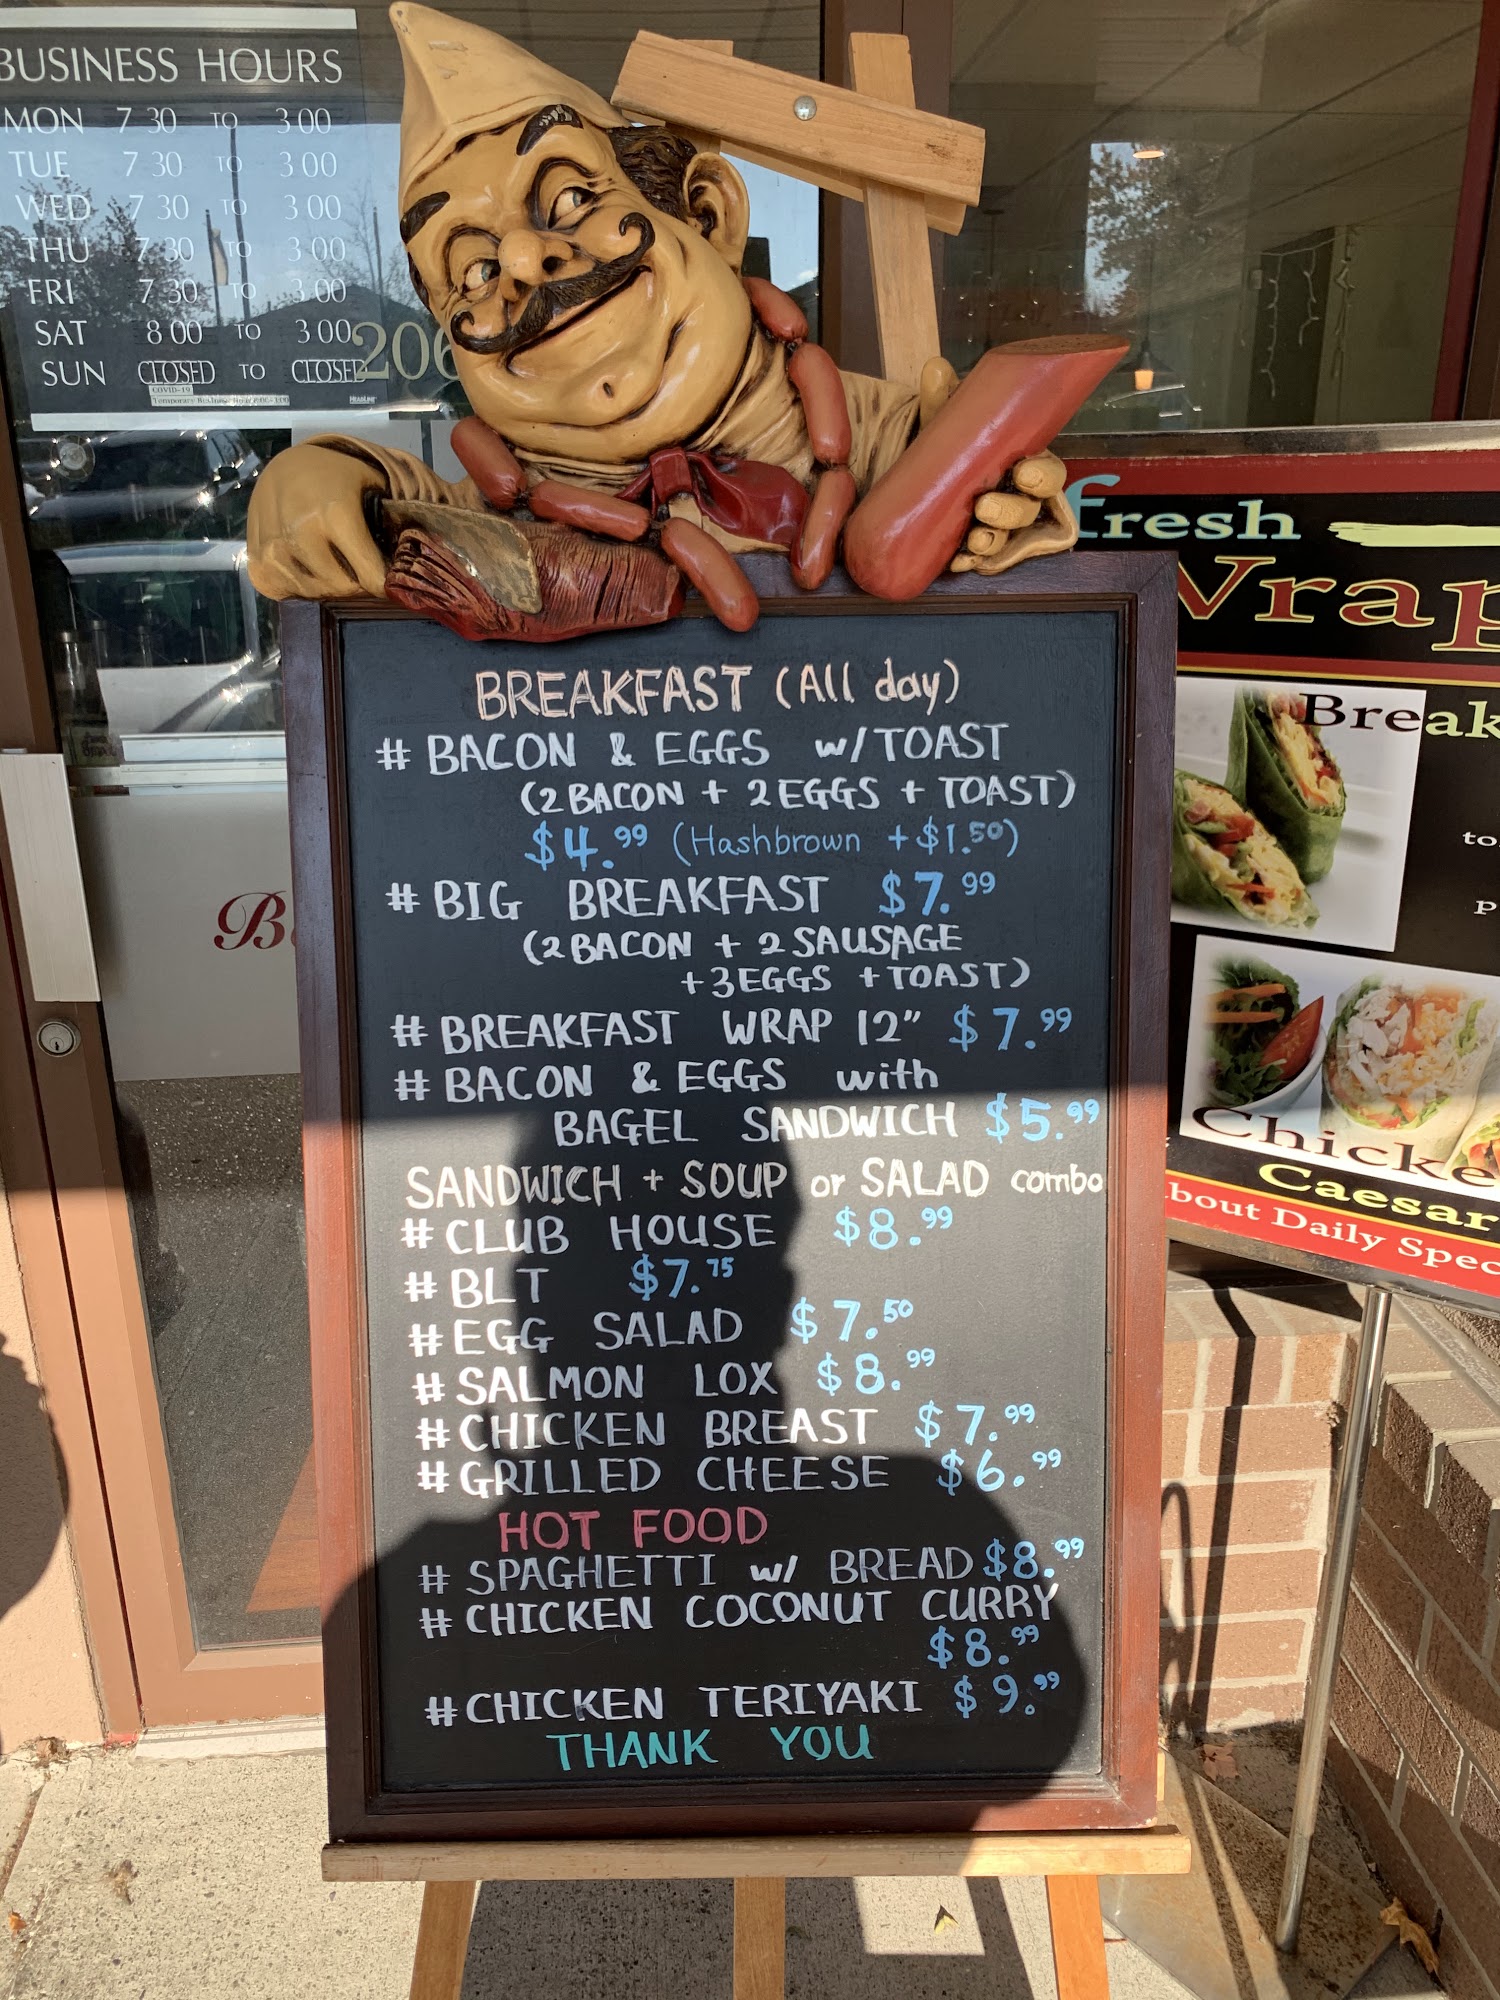 BUSINESS HOURS
MON 7 30 TO 3 00
TUE 7 30 TO 3 00
WED 7 30 TO 3 00
THU 7 30 TO 3 00
FRI 7 30 TO 3 00
SAT 8 00 TO 3 00
SUN CLOSED TO CLOSED
COVID-19
206
BREAKFAST (All day)
# BACON & EGGS w/TOAST
(2 BACON + 2 EGGS + TOAST)
$4.99 (Hashbrown +$1.50)
# BIG BREAKFAST $7.99
(2 BACON + 2 SAUSAGE
+3EGGS +TOAST)
# BREAKFAST WRAP 12" $7.99
# BACON & EGGS with
BAGEL SANDWICH $5.99
SANDWICH + SOUP or SALAD combo
# CLUB HOUSE $8.99
# BLT $7.75
# EGG SALAD $7.50
# SALMON LOX $8.99
# CHICKEN BREAST $7.99
# GRILLED CHEESE $6.99
HOT FOOD
# SPAGHETTI w/ BREAD $8.99
# CHICKEN COCONUT CURRY
$8.99
# CHICKEN TERIYAKI $9.99
THANK YOU
fresh
Wrap
Break
to
p
Chicke
Caesar
bout Daily Spec